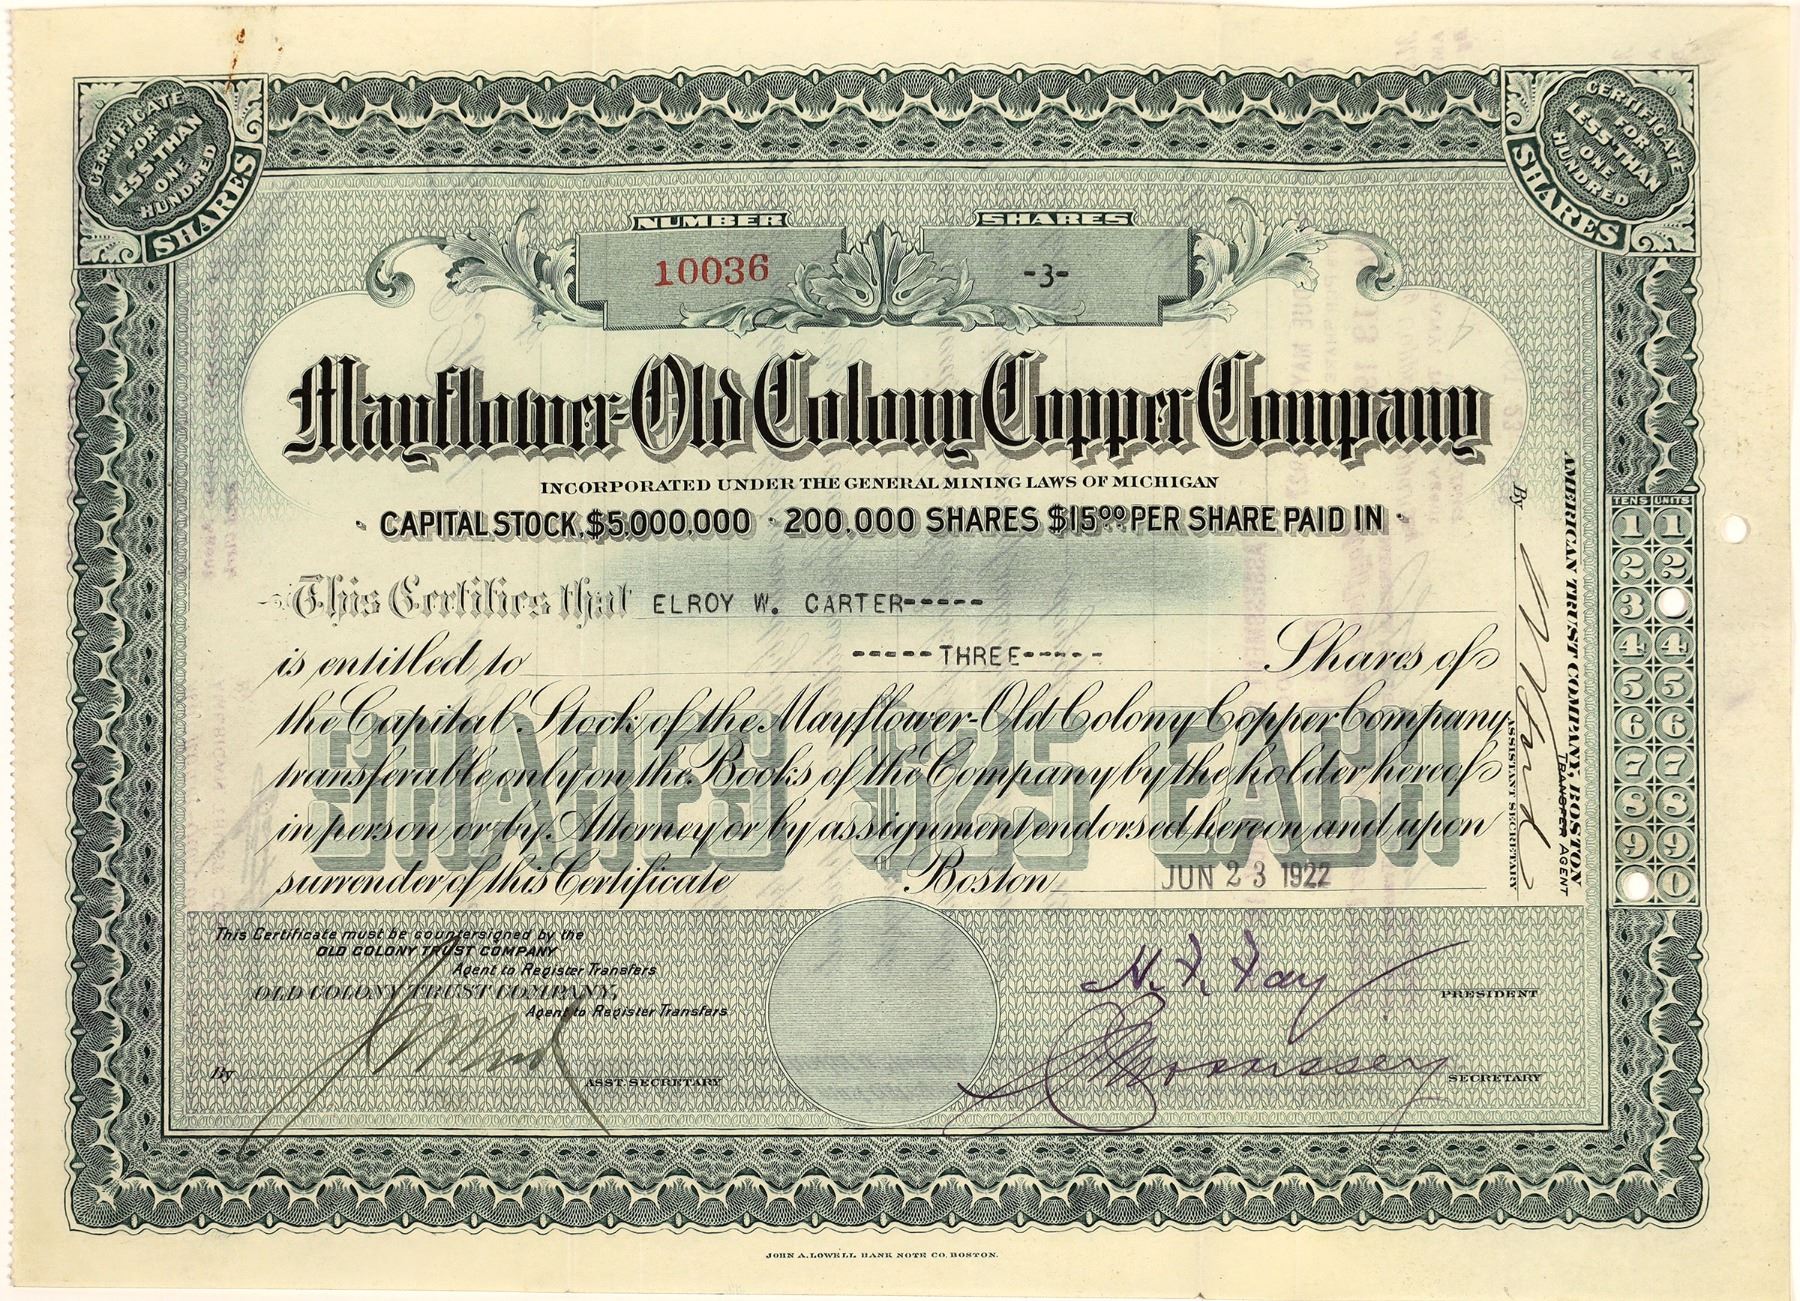 CERTIFICATE
FOR
LESS THAN
ONE
HUNDRED
SHARES
CERTIFICATE
FOR
LESS THAN
ONE
HUNDRED
SHARES
NUMBER
SHARES
10036
-3-
Mayflower-Old Colony Copper Company
INCORPORATED UNDER THE GENERAL MINING LAWS OF MICHIGAN
CAPITAL STOCK, $5,000,000 · 200,000 SHARES $15.00 PER SHARE PAID IN
This Certifies that ELROY W. CARTER-----
is entitled to -----THREE----- Shares of
the Capital Stock of the Mayflower-Old Colony Copper Company
transferable only on the Books of the Company by the holder hereof
in person or by Attorney or by assignment endorsed hereon and upon
surrender of this Certificate Boston JUN 23 1922
SHARES $25 EACH
This Certificate must be countersigned by the
OLD COLONY TRUST COMPANY
Agent to Register Transfers
OLD COLONY TRUST COMPANY,
Agent to Register Transfers
By
ASST. SECRETARY
N. F. Fay
PRESIDENT
Morrissey
SECRETARY
AMERICAN TRUST COMPANY, BOSTON
TRANSFER AGENT
By
ASSISTANT SECRETARY
TENS UNITS
1 1
2 2
3
4 4
5 5
6 6
7 7
8 8
9 9
0
JOHN A. LOWELL BANK NOTE CO. BOSTON.